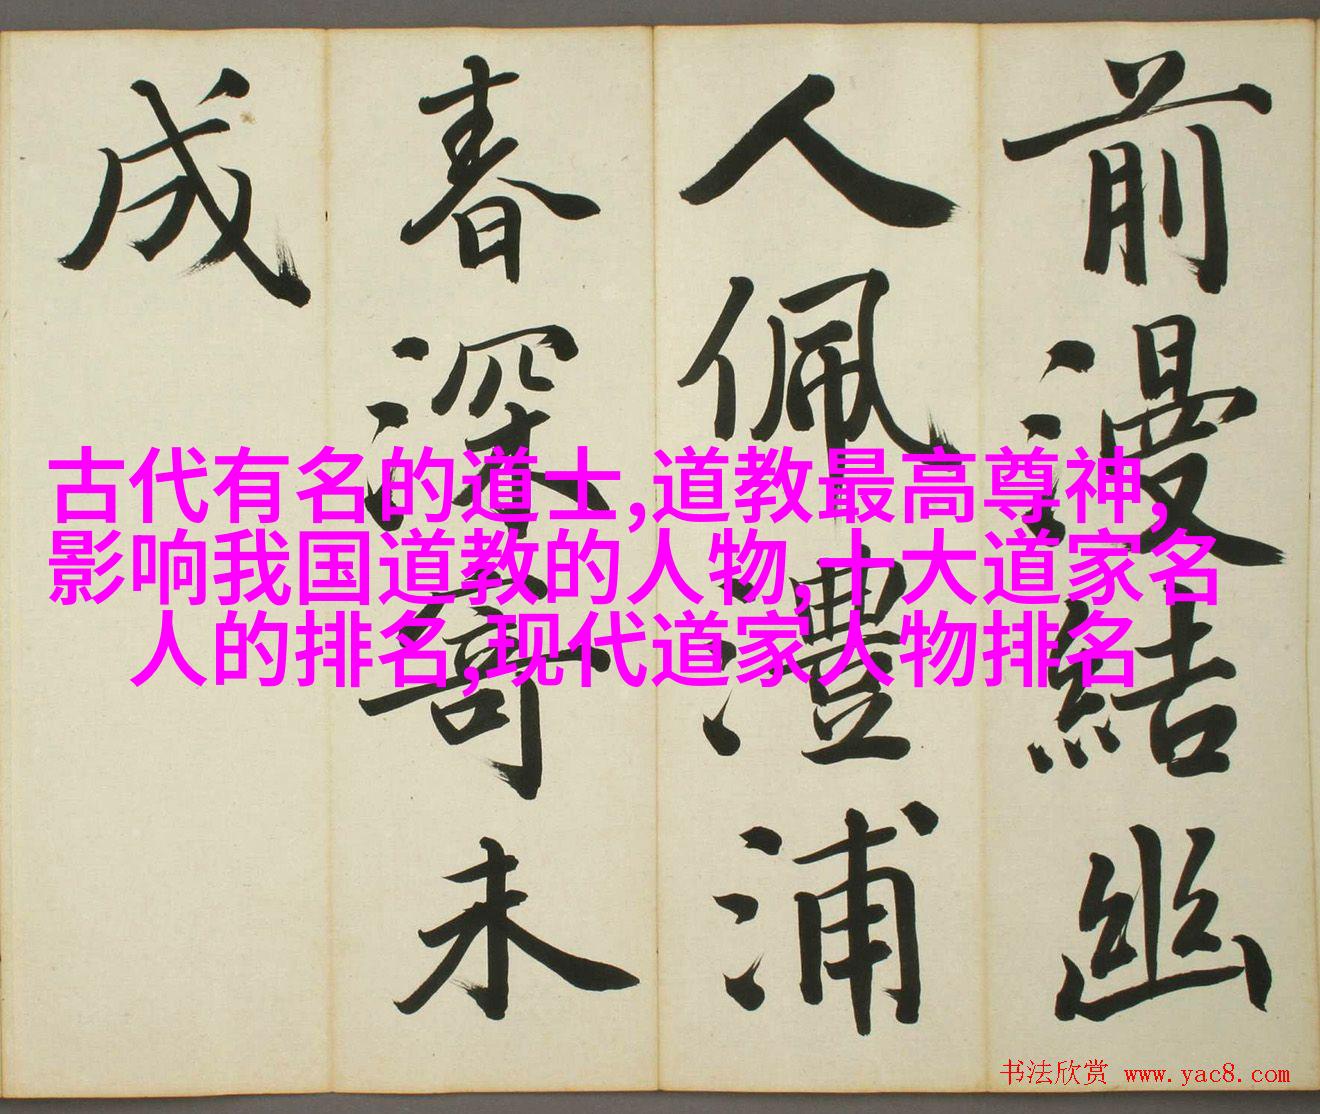 前漫結幽
人佩澧浦
春深奇未
成
古代有名的道士,道教最高尊神,
影响我国道教的人物,十大道家名
人的排名,现代道家人物排名
书法欣赏 www.yac8.com